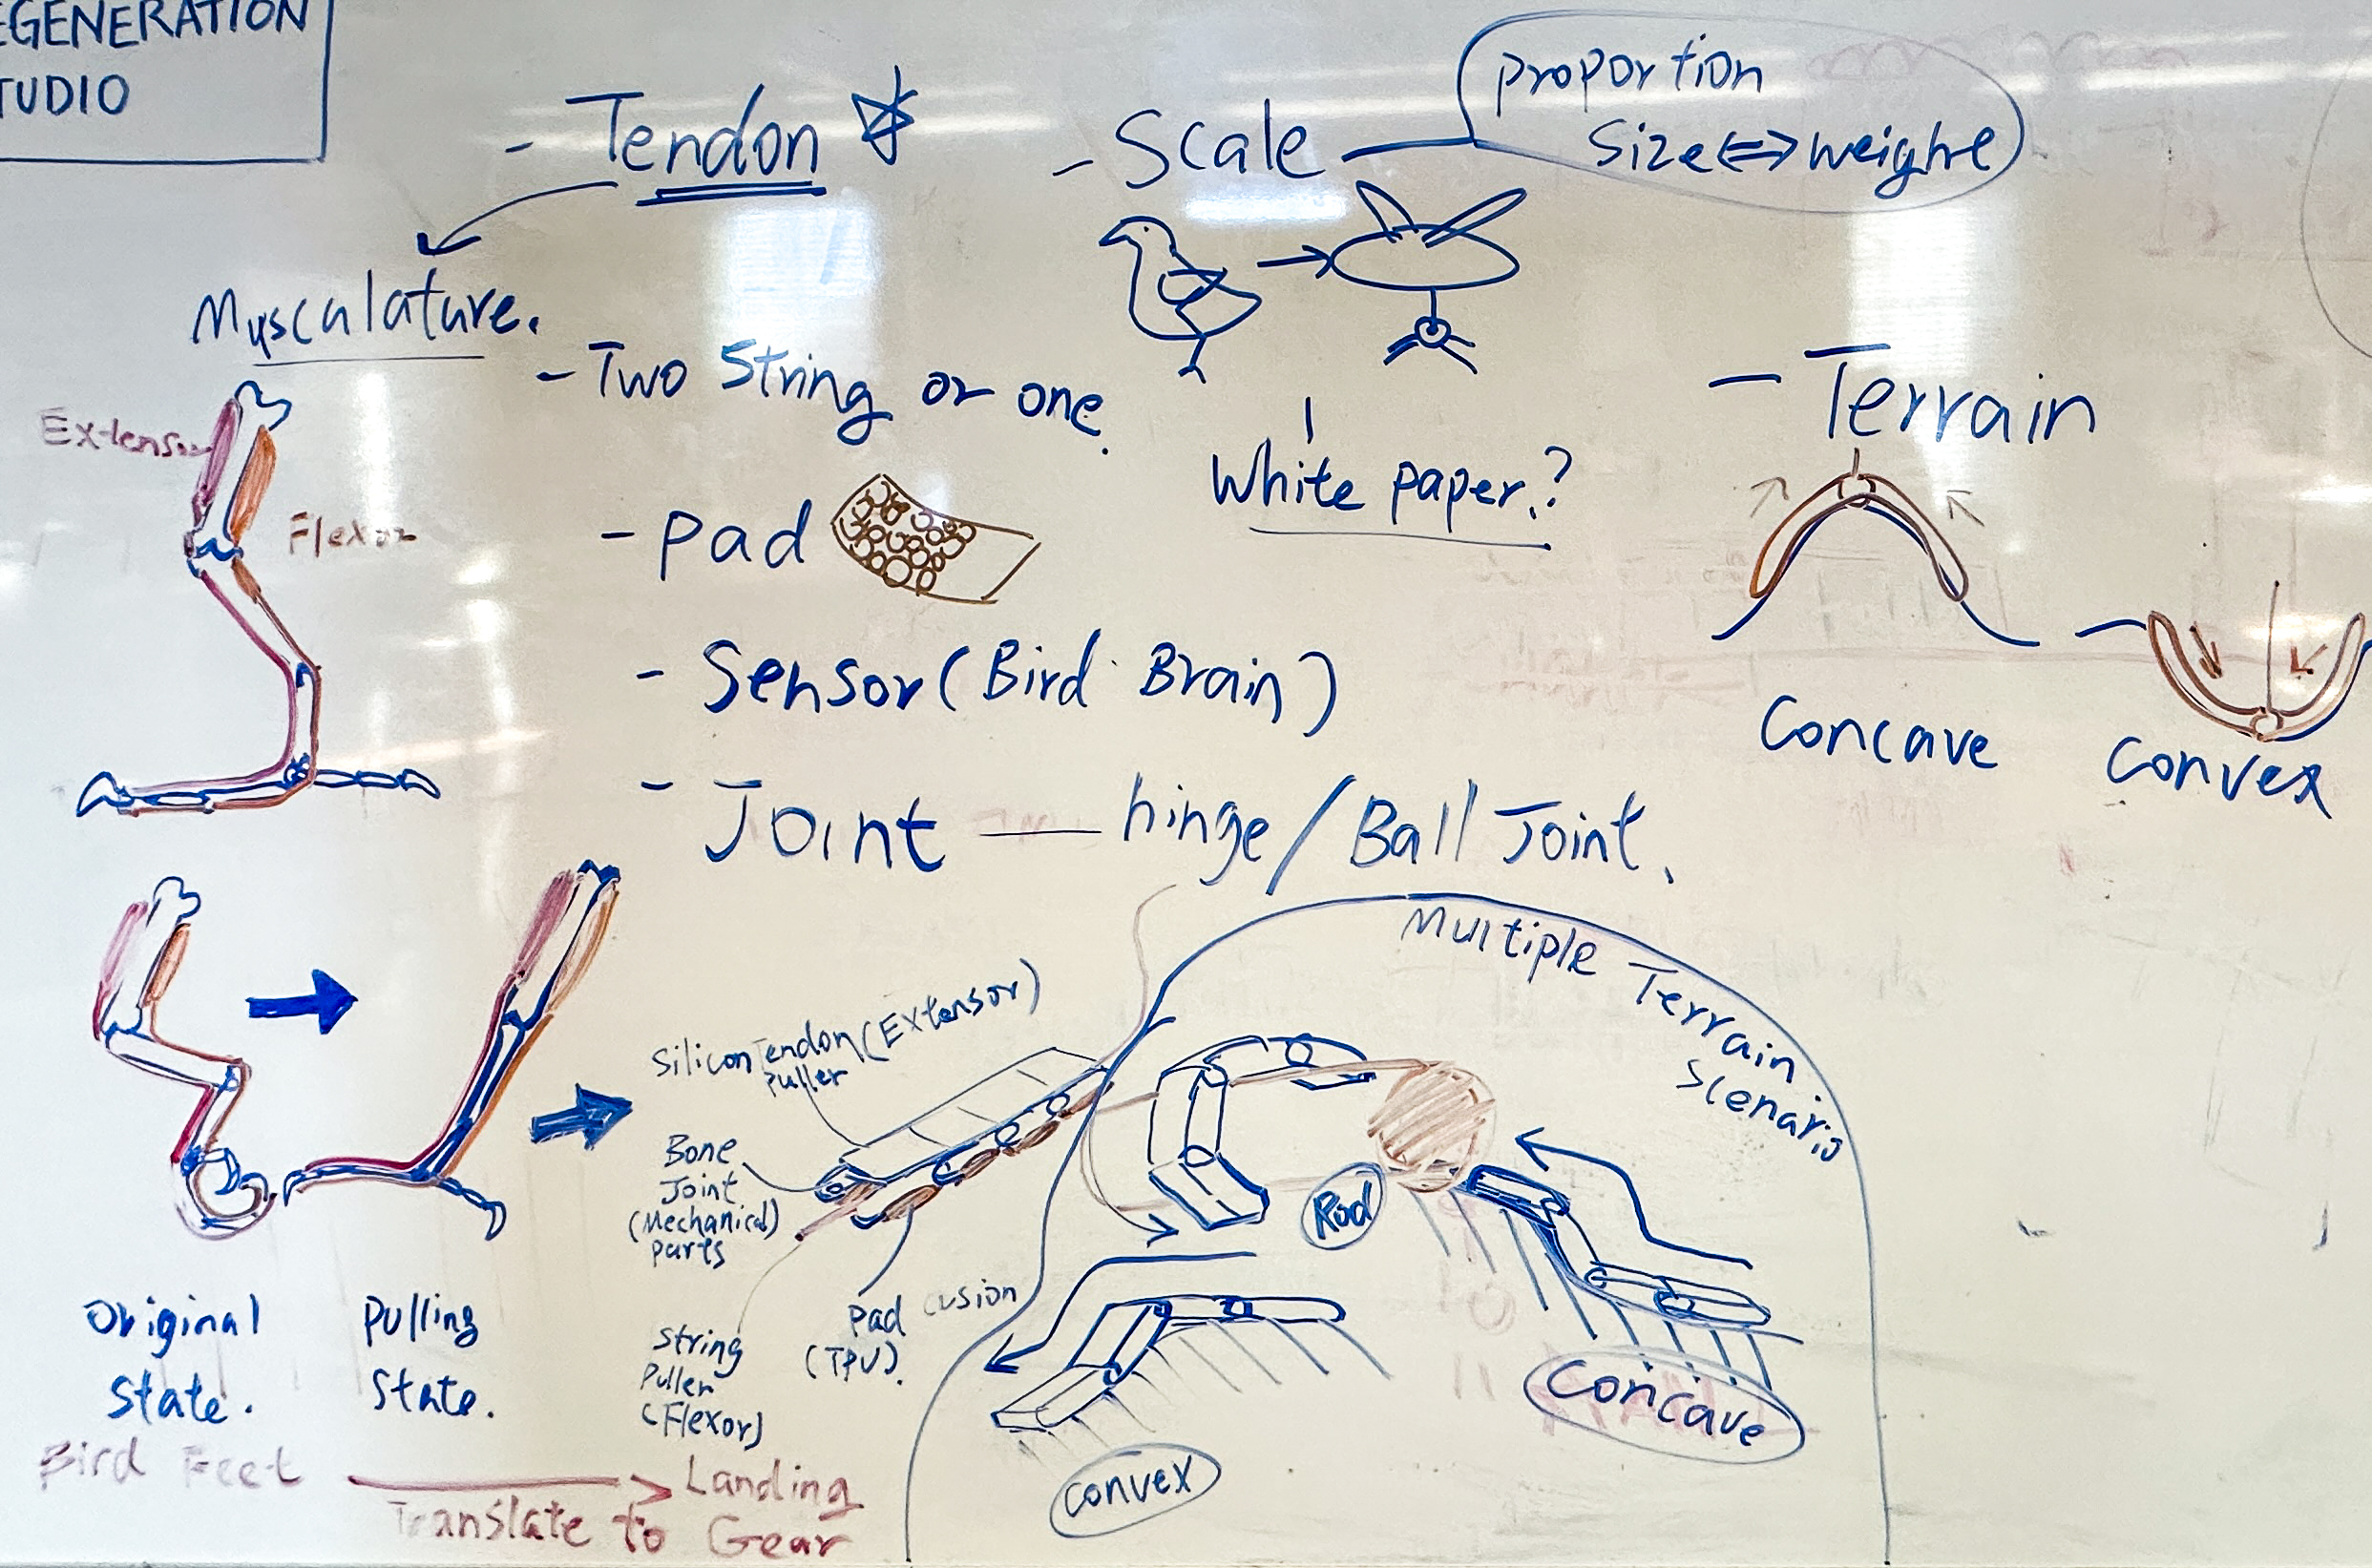 EGENERATION
TUDIO
- Tendon
- Scale
proportion
Size ⇔ weight
Musculature.
- Two String or one.
White paper.?
- Terrain
Extensor
Flexor
- Pad
- Sensor (Bird Brain)
Concave
Convex
- Joint — hinge / Ball Joint.
Multiple Terrain
Scenario
Silicon Tendon (Extensor)
Puller
Bone
Joint
(Mechanical)
parts
Rod
Pad cusion
(TPU).
String
Puller
(Flexor)
Original
State.
Pulling
State.
Concave
Convex
Bird Feet
Translate to
Landing
Gear